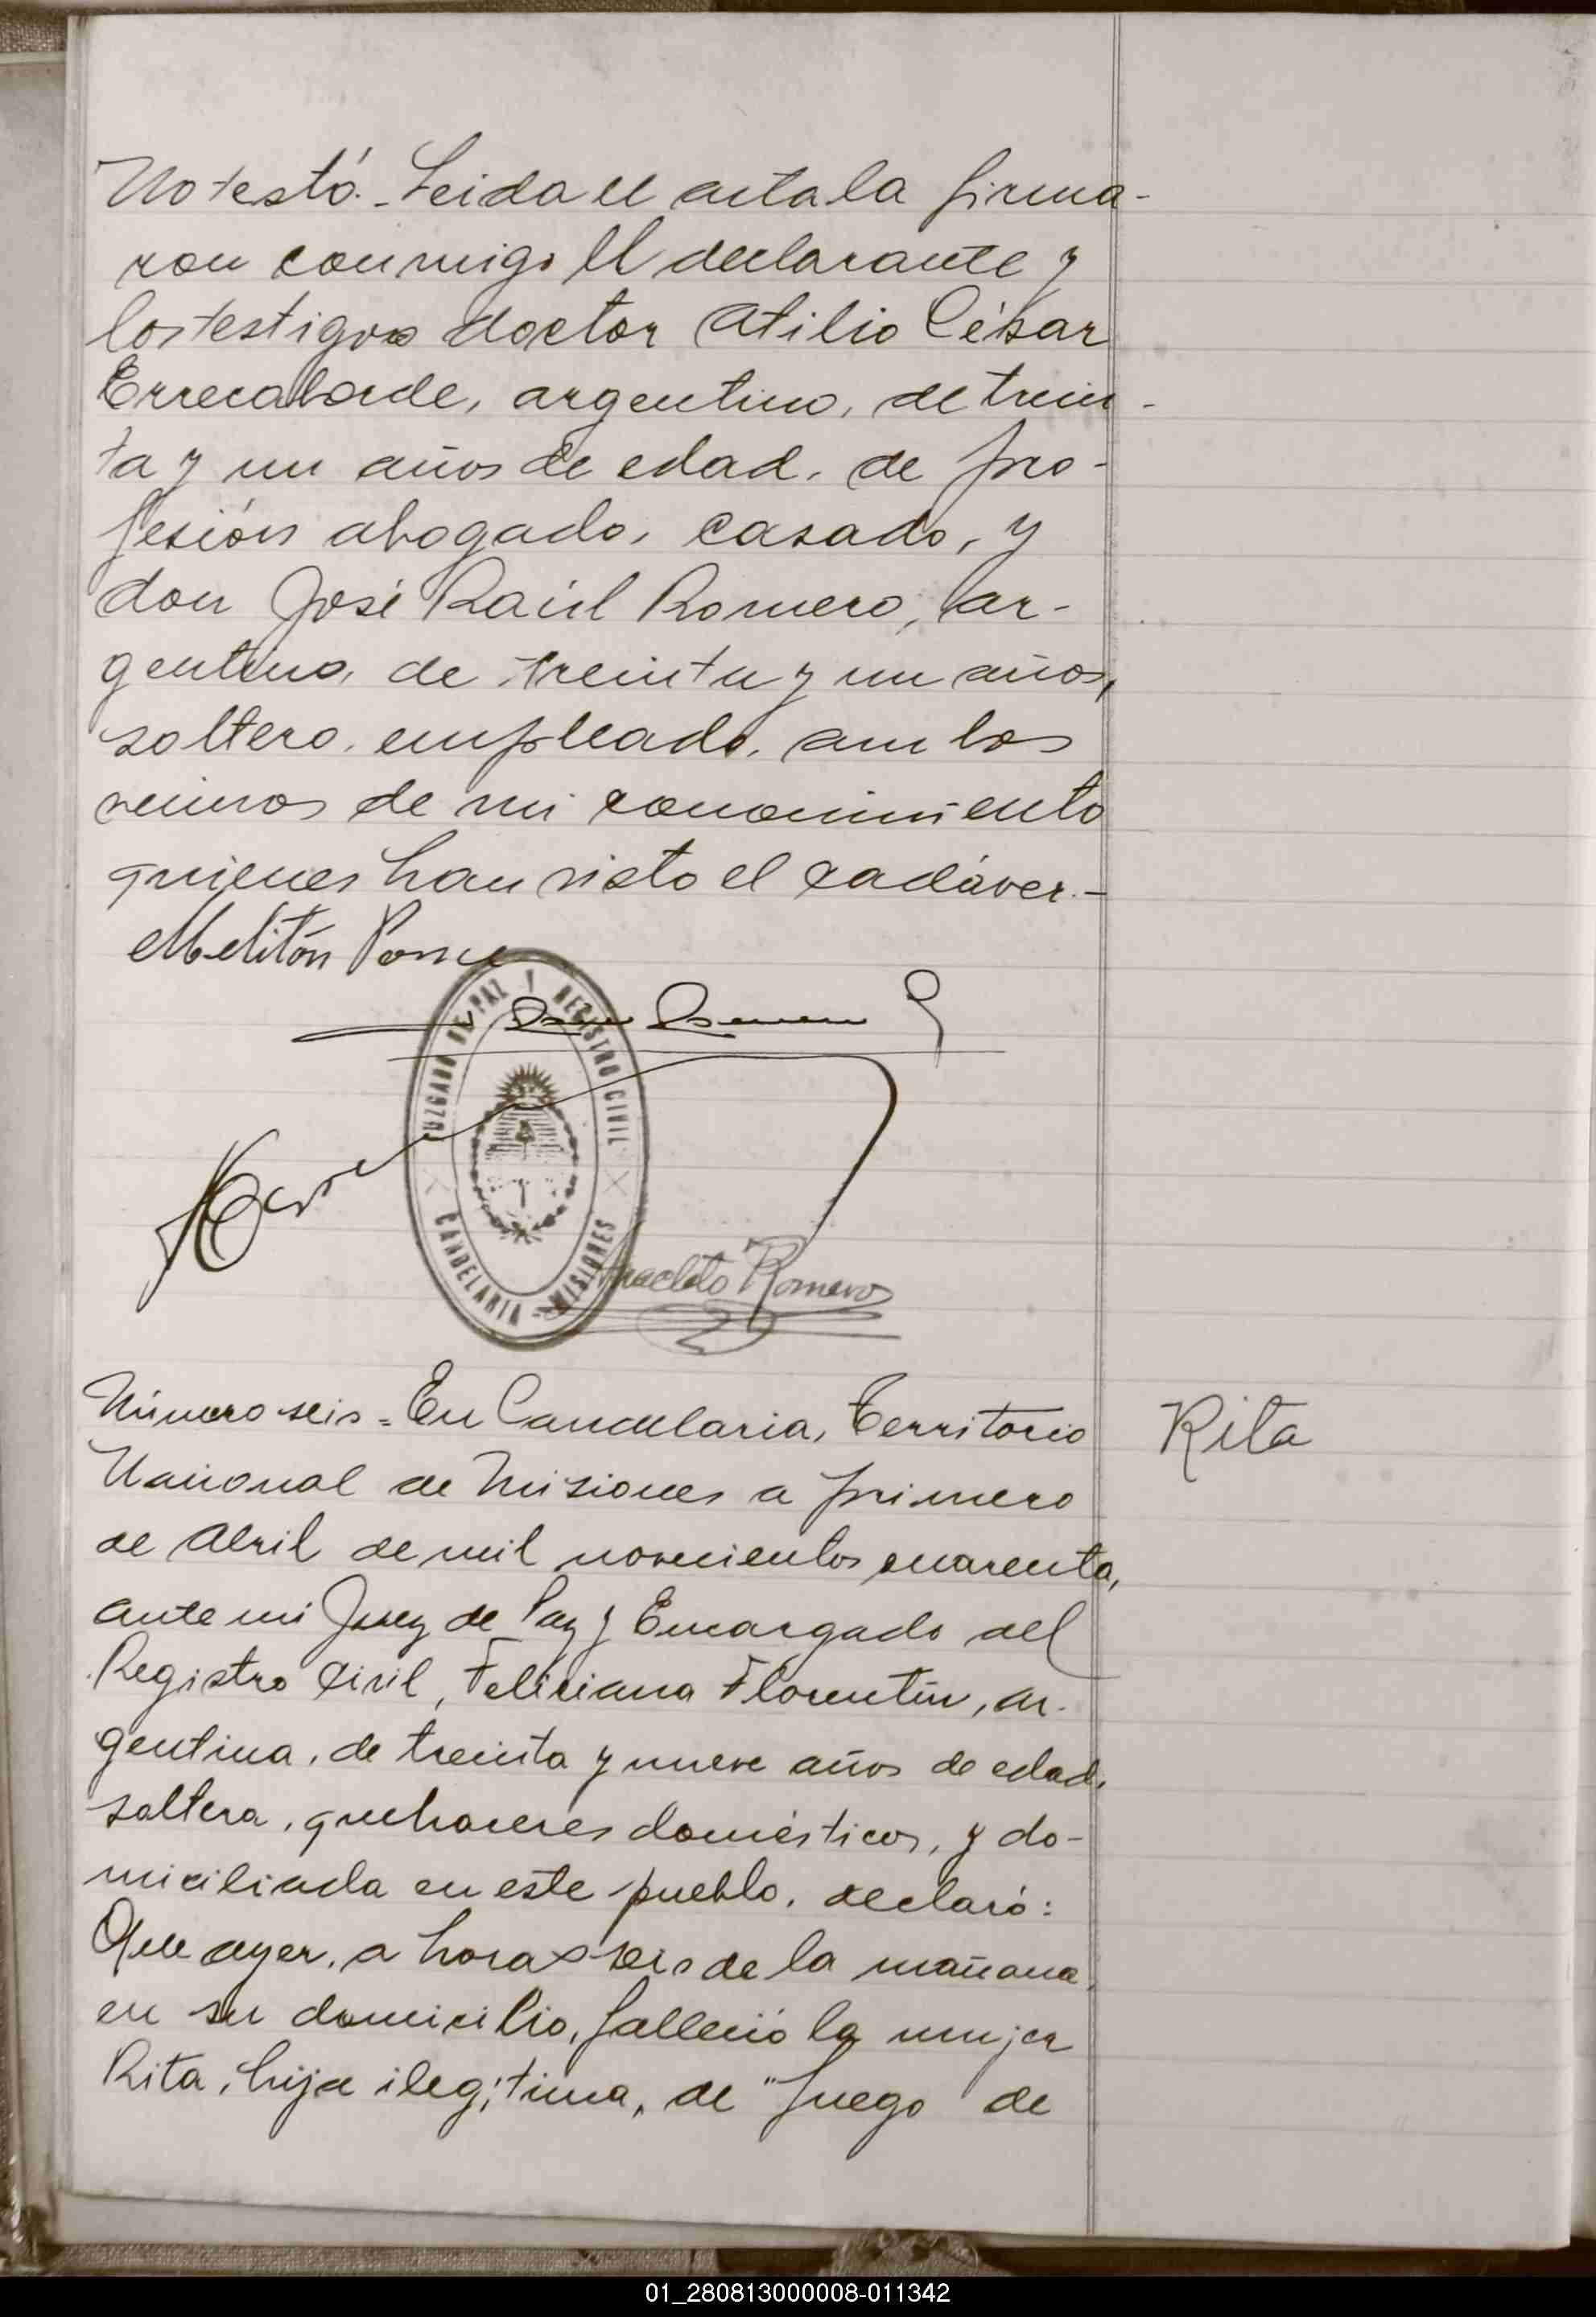 No testó.- Leida el acta la firma-
ron conmigo el declarante y
los testigos doctor Atilio César
Errecaborde, argentino, de trein-
ta y un años de edad, de pro-
fesión abogado, casado, y
don José Raúl Romero, ar-
gentino, de treinta y un años,
soltero, empleado, ambos
vecinos de mi conocimiento
quienes han visto el cadáver.-
Melitón Ponce
JUZGADO DE PAZ Y REGISTRO CIVIL
CANDELARIA - MISIONES
Anacleto Romero
Número seis = En Candelaria, Territorio
Rita
Nacional de Misiones a primero
de Abril de mil novecientos cuarenta,
ante mi Juez de Paz y Encargado del
Registro Civil, Feliciana Florentín, ar-
gentina, de treinta y nueve años de edad,
soltera, quehaceres domésticos, y do-
miciliada en este pueblo, declaró:
Que ayer, a horas seis de la mañana,
en su domicilio, falleció la mujer
Rita, hija ilegítima, de "fuego de
01_280813000008-011342